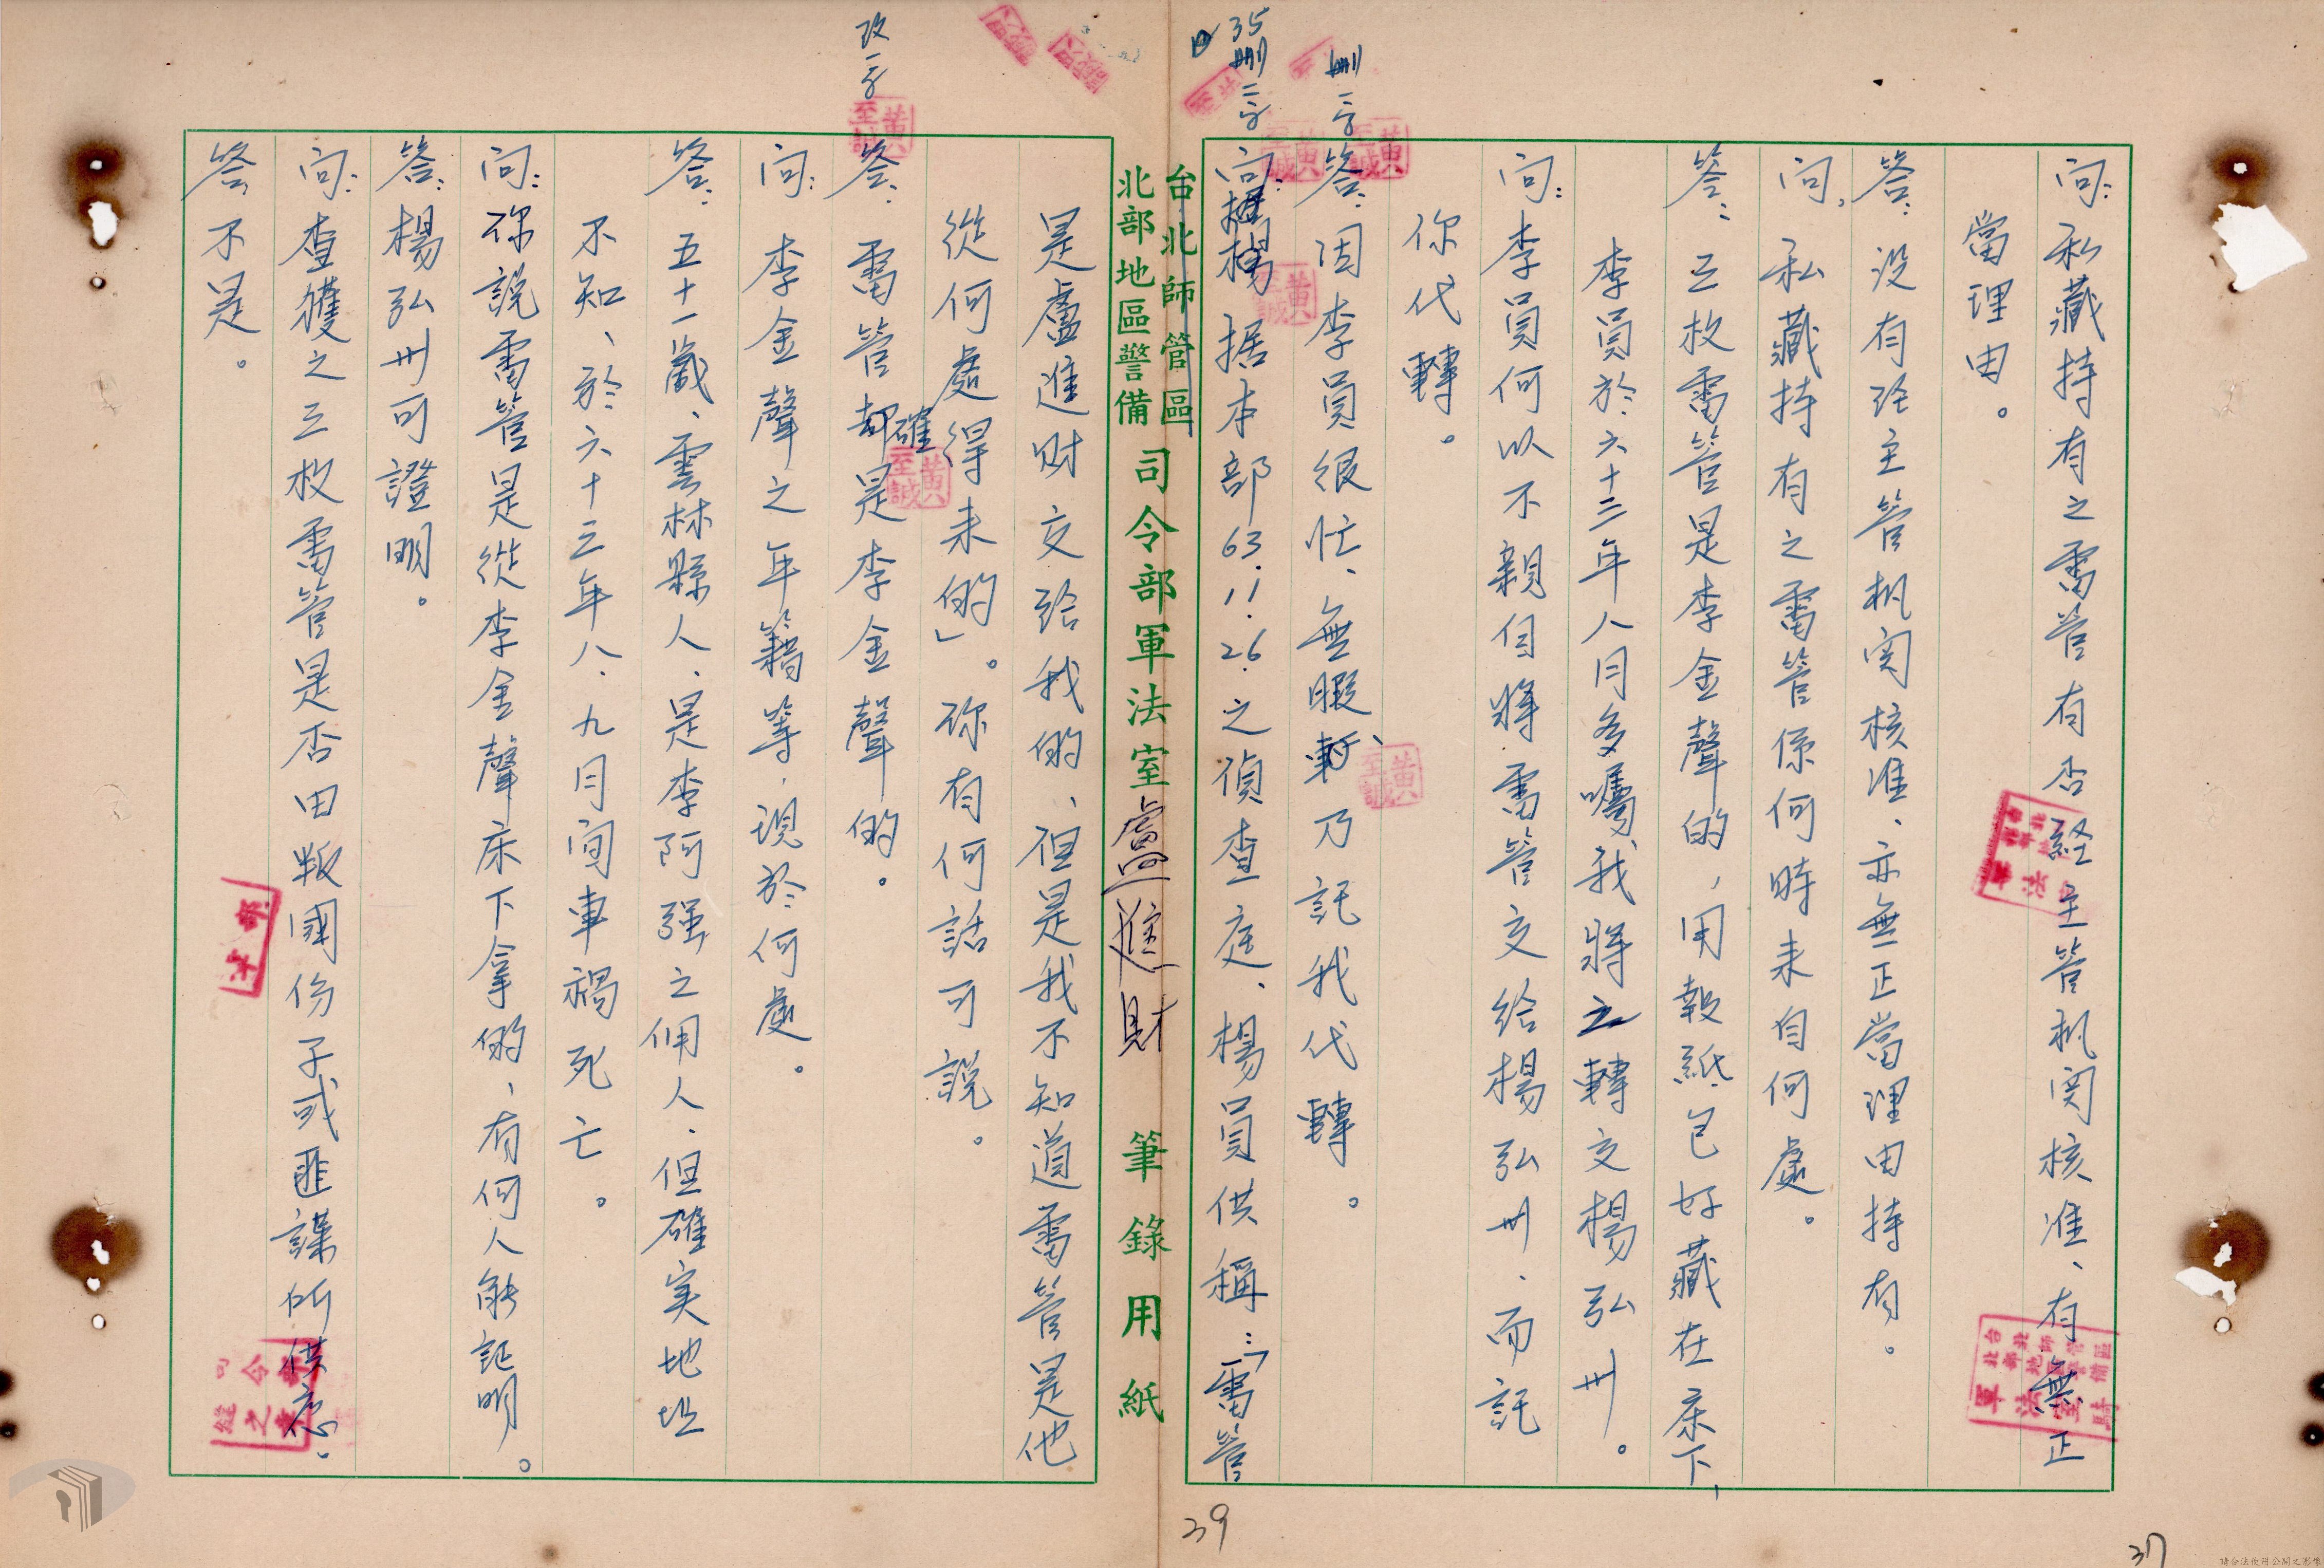 問：私藏持有之雷管有否経主管机関核准、有無正
當理由。
答：没有経主管机関核准、亦無正當理由持有。
問，私藏持有之雷管係何時来自何處。
答：三枚雷管是李金聲的，用報紙包好藏在床下、
李員於六十三年八月多囑我將之轉交楊弘卅。
問：李員何以不親自將雷管交給楊弘卅、而託
你代轉。
答：因李員很忙、無暇、乃託我代轉。
問：据本部63.11.26.之偵查庭、楊員供稱：「雷管
台北師管區
北部地區警備
司令部軍法室 盧進財 筆錄用紙
是盧進財交給我的、但是我不知道雷管是他
從何處得来的」。你有何話可說。
答：雷管確是李金聲的。
問：李金聲之年籍等，現於何處。
答：五十一歲、雲林縣人、是李阿强之佣人、但確实地址
不知、於六十三年八、九月间車禍死亡。
問：你說雷管是從李金聲床下拿的、有何人能証明。
答：楊弘卅可證明。
問：查獲之三枚雷管是否由叛國份子或匪諜所供应。
答，不是。
删二字
35删二字
改一字
黃至誠
39
37
請合法使用公開之影像